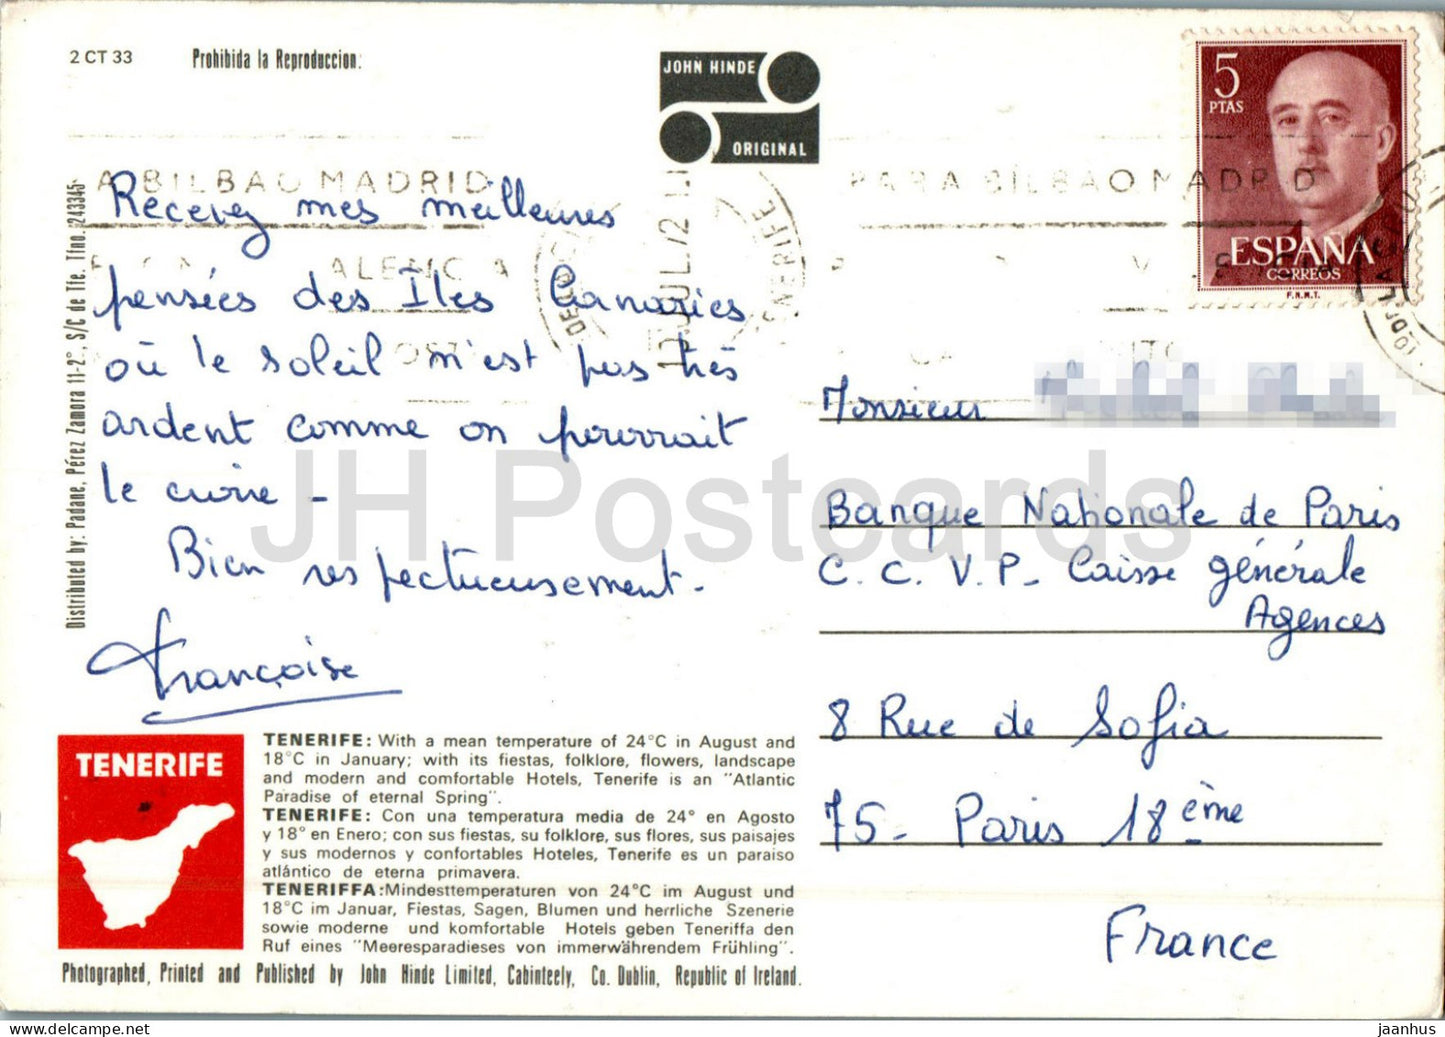 2 CT 33
Prohibida la Reproduccion.
JOHN HINDE
ORIGINAL
5
PTAS
ESPAÑA
CORREOS
F.N.M.T.
A BILBAO MADRID
PARA BILBAO MADRID
ALENCIA
TENERIFE
Recevez mes meilleures
pensées des Iles Canaries
où le soleil n'est pas très
ardent comme on pourrait
le croire -
Bien respectueusement.
Françoise
Distributed by: Padane, Pérez Zamora 11-2°, S/C de Tfe. Tfno. 243345
Monsieur
Banque Nationale de Paris
C. C. V. P. Caisse générale
Agences
8 Rue de Sofia
75 - Paris 18ème
France
TENERIFE
TENERIFE: With a mean temperature of 24°C in August and
18°C in January; with its fiestas, folklore, flowers, landscape
and modern and comfortable Hotels, Tenerife is an "Atlantic
Paradise of eternal Spring".
TENERIFE: Con una temperatura media de 24° en Agosto
y 18° en Enero; con sus fiestas, su folklore, sus flores, sus paisajes
y sus modernos y confortables Hoteles, Tenerife es un paraiso
atlántico de eterna primavera.
TENERIFFA: Mindesttemperaturen von 24°C im August und
18°C im Januar, Fiestas, Sagen, Blumen und herrliche Szenerie
sowie moderne und komfortable Hotels geben Teneriffa den
Ruf eines "Meeresparadieses von immerwährendem Frühling".
Photographed, Printed and Published by John Hinde Limited, Cabinteely, Co. Dublin, Republic of Ireland.
JH Postcards
jaanhus